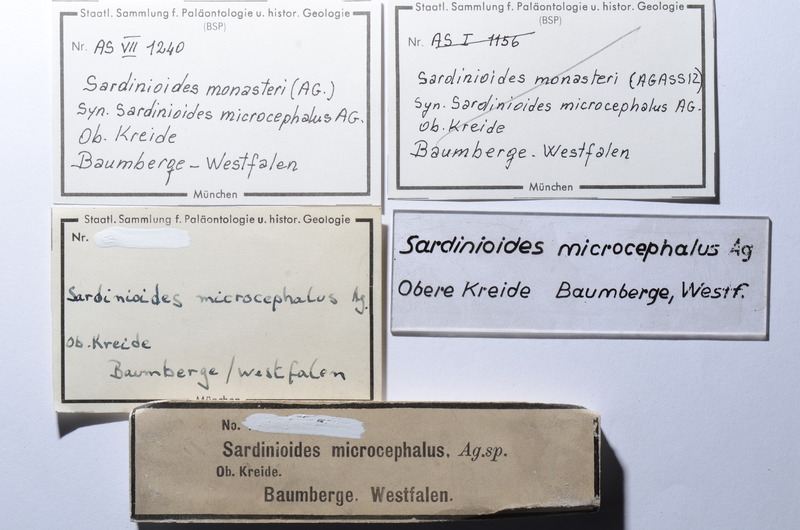 Staatl. Sammlung f. Paläontologie u. histor. Geologie
(BSP)
Nr. AS VII 1240
Sardinioides monasteri (AG.)
Syn. Sardinioides microcephalus AG.
Ob. Kreide
Baumberge - Westfalen
München
Staatl. Sammlung f. Paläontologie u. histor. Geologie
(BSP)
Nr. AS I 1156
Sardinioides monasteri (AGASSIZ)
Syn. Sardinioides microcephalus AG.
Ob. Kreide
Baumberge - Westfalen
München
Staatl. Sammlung f. Paläontologie u. histor. Geologie
Nr.
Sardinioides microcephalus Ag.
Ob. Kreide
Baumberge/Westfalen
München
Sardinioides microcephalus Ag
Obere Kreide Baumberge, Westf.
No.
Sardinoides microcephalus, Ag.sp.
Ob. Kreide.
Baumberge. Westfalen.